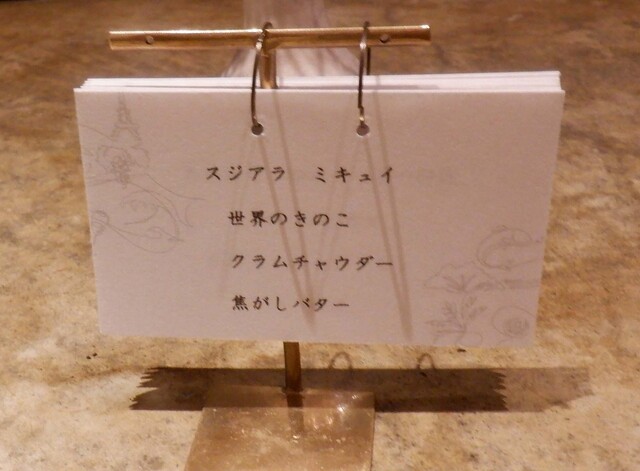 スジアラ　ミキュイ
世界のきのこ
クラムチャウダー
焦がしバター